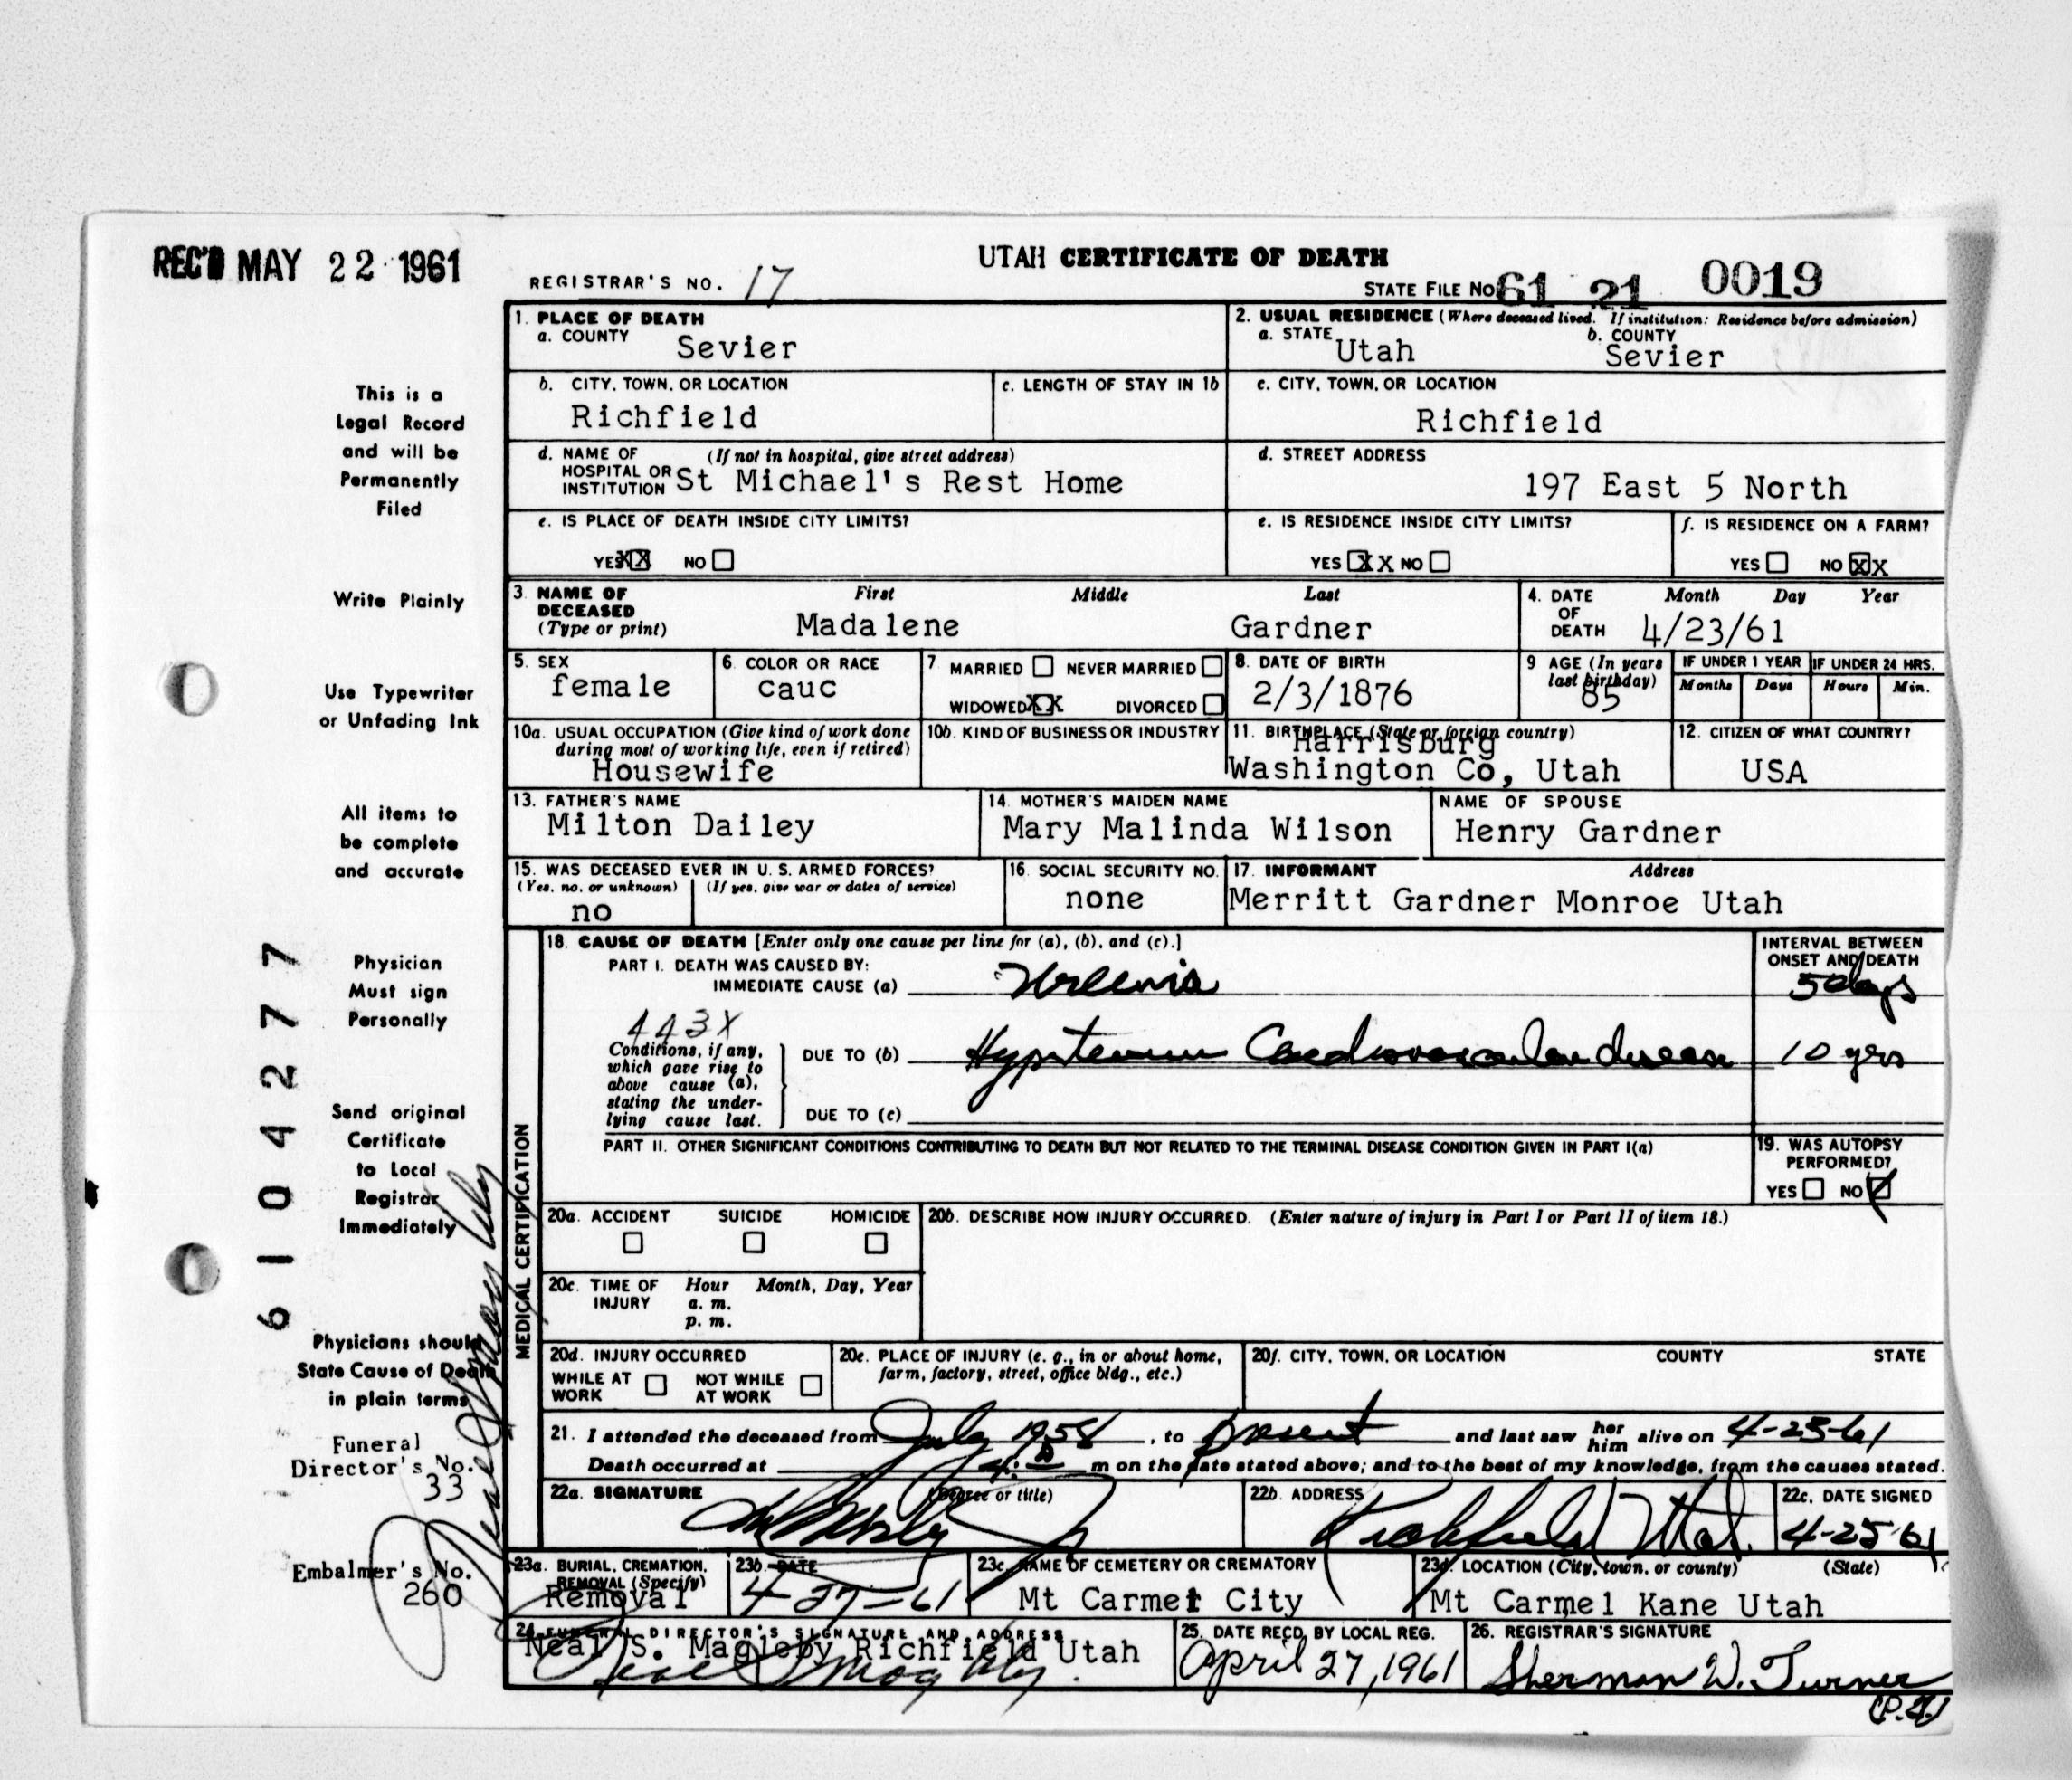 REC'D MAY 22 1961
UTAH CERTIFICATE OF DEATH
REGISTRAR'S NO. 17
STATE FILE NO. 61 21 0019
1. PLACE OF DEATH
a. COUNTY Sevier
2. USUAL RESIDENCE (Where deceased lived. If institution: Residence before admission)
a. STATE Utah b. COUNTY Sevier
b. CITY, TOWN, OR LOCATION Richfield
c. LENGTH OF STAY IN 1b
c. CITY, TOWN, OR LOCATION Richfield
d. NAME OF HOSPITAL OR INSTITUTION (If not in hospital, give street address) St Michael's Rest Home
d. STREET ADDRESS 197 East 5 North
e. IS PLACE OF DEATH INSIDE CITY LIMITS?
YES XX NO
e. IS RESIDENCE INSIDE CITY LIMITS?
YES XX NO
f. IS RESIDENCE ON A FARM?
YES NO XX
3. NAME OF DECEASED (Type or print) First Middle Last
Madalene Gardner
4. DATE OF DEATH Month Day Year
4/23/61
5. SEX female
6. COLOR OR RACE cauc
7 MARRIED NEVER MARRIED
WIDOWED XX DIVORCED
8. DATE OF BIRTH 2/3/1876
9 AGE (In years last birthday) 85
IF UNDER 1 YEAR Months Days
IF UNDER 24 HRS. Hours Min.
10a. USUAL OCCUPATION (Give kind of work done during most of working life, even if retired) Housewife
10b. KIND OF BUSINESS OR INDUSTRY
11. BIRTHPLACE (State or foreign country) Harrisburg
Washington Co, Utah
12. CITIZEN OF WHAT COUNTRY? USA
13. FATHER'S NAME Milton Dailey
14. MOTHER'S MAIDEN NAME Mary Malinda Wilson
NAME OF SPOUSE Henry Gardner
15. WAS DECEASED EVER IN U. S. ARMED FORCES?
(Yes, no, or unknown) no
(If yes, give war or dates of service)
16. SOCIAL SECURITY NO. none
17. INFORMANT Address
Merritt Gardner Monroe Utah
MEDICAL CERTIFICATION
18. CAUSE OF DEATH [Enter only one cause per line for (a), (b), and (c).]
INTERVAL BETWEEN ONSET AND DEATH
PART I. DEATH WAS CAUSED BY:
IMMEDIATE CAUSE (a) Uremia 5 days
443X
Conditions, if any, which gave rise to above cause (a), stating the underlying cause last.
DUE TO (b) Hypertensive Cardiovascular disease 10 yrs
DUE TO (c)
PART II. OTHER SIGNIFICANT CONDITIONS CONTRIBUTING TO DEATH BUT NOT RELATED TO THE TERMINAL DISEASE CONDITION GIVEN IN PART I(a)
19. WAS AUTOPSY PERFORMED?
YES NO
20a. ACCIDENT SUICIDE HOMICIDE
20b. DESCRIBE HOW INJURY OCCURRED. (Enter nature of injury in Part I or Part II of item 18.)
20c. TIME OF INJURY Hour a. m. p. m. Month, Day, Year
20d. INJURY OCCURRED
WHILE AT WORK NOT WHILE AT WORK
20e. PLACE OF INJURY (e. g., in or about home, farm, factory, street, office bldg., etc.)
20f. CITY, TOWN, OR LOCATION COUNTY STATE
21. I attended the deceased from July 1958, to present and last saw her him alive on 4-23-61
Death occurred at 4: m on the date stated above; and to the best of my knowledge, from the causes stated.
22a. SIGNATURE (Degree or title)
22b. ADDRESS Richfield Utah.
22c. DATE SIGNED 4-25-61
23a. BURIAL, CREMATION, REMOVAL (Specify) Removal
23b. DATE 4-27-61
23c. NAME OF CEMETERY OR CREMATORY Mt Carmel City
23d. LOCATION (City, town, or county) (State)
Mt Carmel Kane Utah
24. FUNERAL DIRECTOR'S SIGNATURE AND ADDRESS
Neal S. Magleby Richfield Utah
Neal S Magleby
25. DATE RECD. BY LOCAL REG. April 27, 1961
26. REGISTRAR'S SIGNATURE Sherman W. Turner
This is a
Legal Record
and will be
Permanently
Filed
Write Plainly
Use Typewriter
or Unfading Ink
All items to
be complete
and accurate
Physician
Must sign
Personally
Send original
Certificate
to Local
Registrar
Immediately
Physicians should
State Cause of Death
in plain terms
Funeral
Director's No.
33
Embalmer's No.
260
Neal S Magleby
6104277